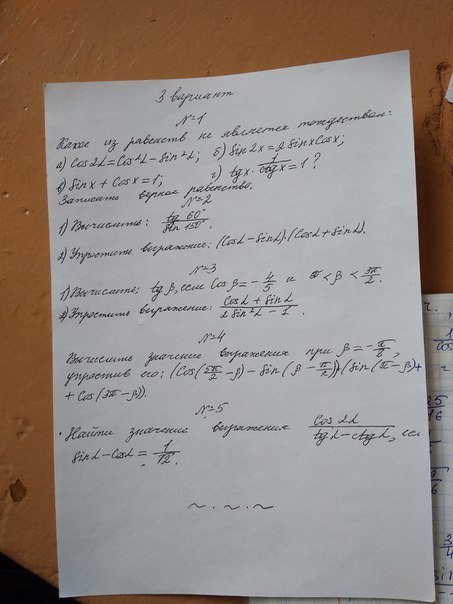 3 вариант
№1
Какое из равенств не является тождеством:
а) Cos2α=Cos²α-Sin²α; б) Sin2x=2SinxCosx;
в) Sinx+Cosx=1; г) tgx·1/ctgx=1?
Записать верное равенство.
№2
1) Вычислить: tg60°/Sin150°.
2) Упростить выражение: (Cosα-Sinα)·(Cosα+Sinα).
№3
1) Вычислить; tgβ, если Cosβ=-4/5 и π<β<3π/2.
2) Упростить выражение: Cosα+Sinα/2Sin²α-1.
№4
Вычислить значение выражения при β=-π/6,
упростив его: (Cos(5π/2-β)-Sin(β-π/2))·(Sin(π-β)+
+Cos(3π-β)).
№5
Найти значение выражения Cos2α/tgα-ctgα, есл
Sinα-Cosα=1/√2.
~.~.~
25
16